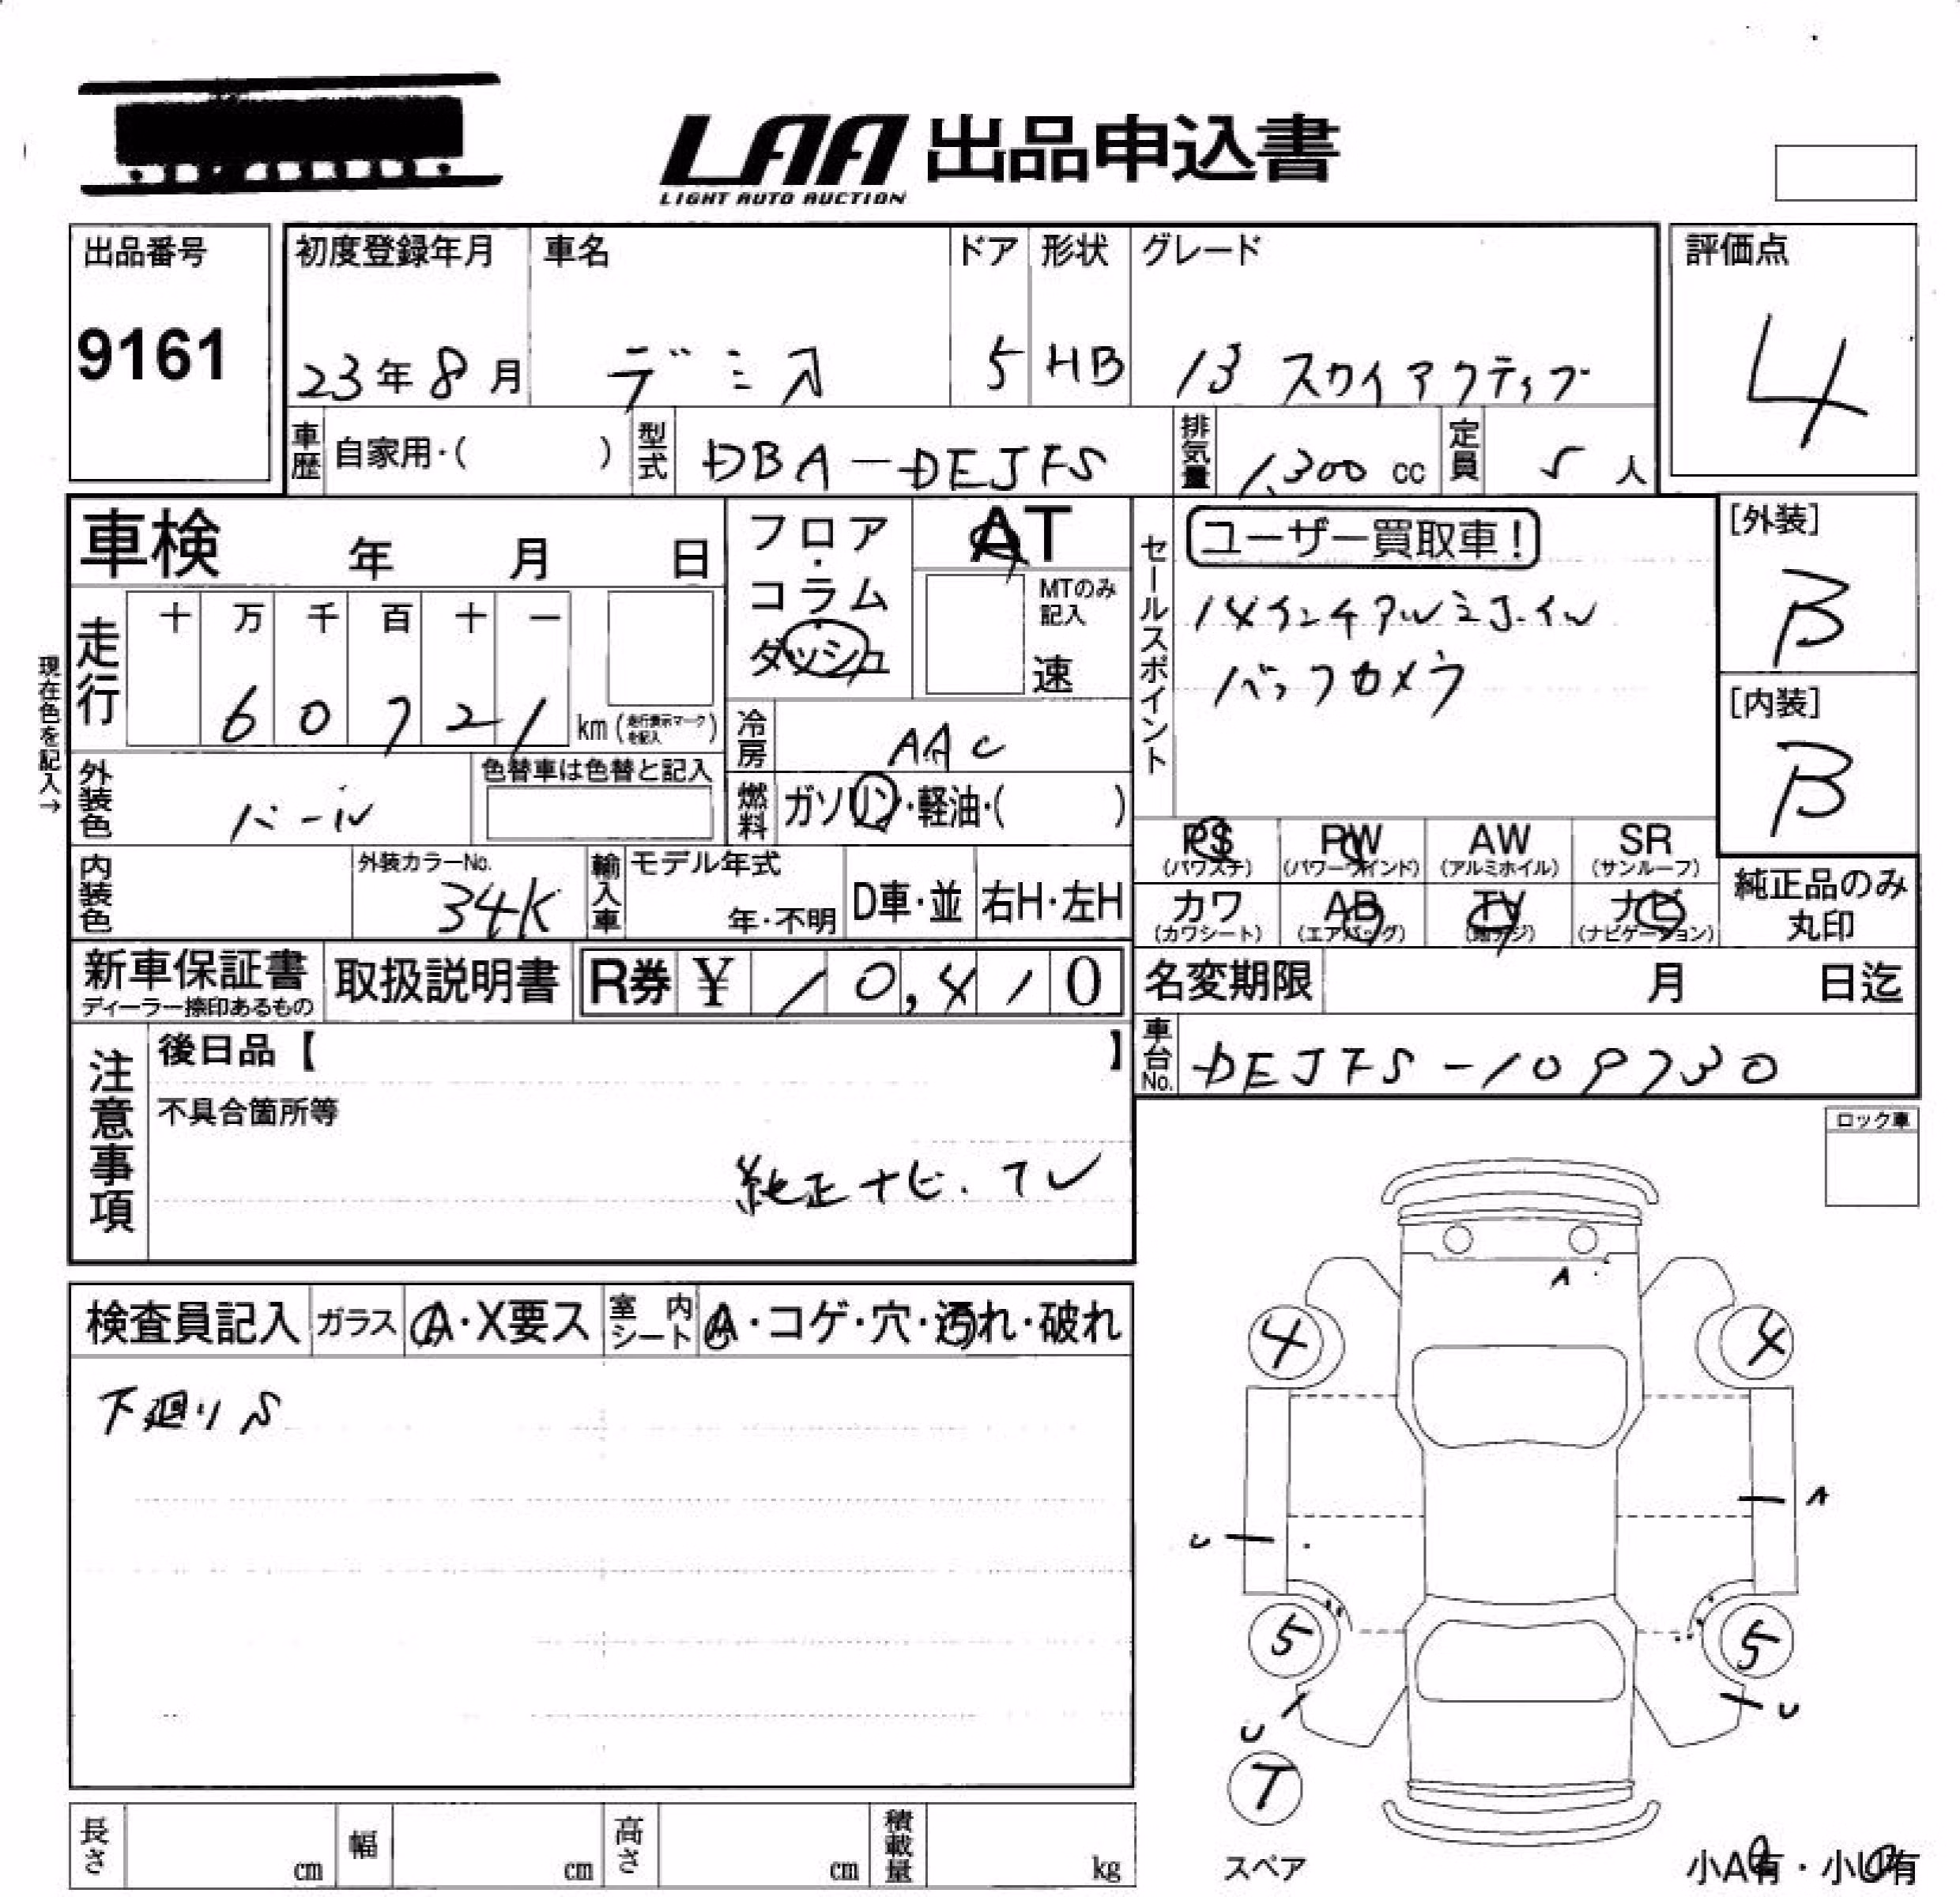 LAA 出品申込書
LIGHT AUTO AUCTION
出品番号
9161
初度登録年月
23年8月
車名
デミオ
ドア
5
形状
HB
グレード
13 スカイアクティブ
評価点
4
車歴
自家用・( )
型式
DBA-DEJFS
排気量
1,300 cc
定員
5 人
車検 年 月 日
フロア・コラム・ダッシュ
AT
MTのみ記入
速
セールスポイント
ユーザー買取車!
14インチアルミホイル
バックカメラ
[外装]
B
[内装]
B
現在色を記入→
走行
十 万 千 百 十 一
6 0 7 2 1 km (走行表示マークを記入)
冷房
AAC
外装色
パール
色替車は色替と記入
燃料
ガソリン・軽油・( )
PS (パワステ)
PW (パワーウインド)
AW (アルミホイル)
SR (サンルーフ)
カワ (カワシート)
AB (エアバッグ)
TV (地デジ)
ナビ (ナビゲーション)
純正品のみ丸印
内装色
外装カラーNo.
34K
輸入車
モデル年式
年・不明
D車・並
右H・左H
新車保証書
ディーラー捺印あるもの
取扱説明書
R券 ¥ 10,410
名変期限 月 日迄
車台No.
DEJFS-109730
注意事項
後日品【 】
不具合箇所等
純正ナビ.TV
ロック車
検査員記入
ガラス
A・X要ス
室内シート
A・コゲ・穴・汚れ・破れ
下廻りS
A
4 4
A
U
5 5
U U
T
スペア
長さ cm
幅 cm
高さ cm
積載量 kg
小A有・小U有